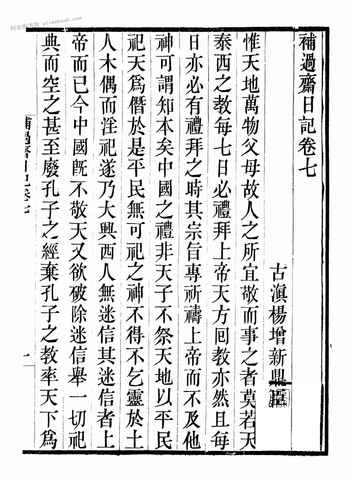 補過齋日記卷七
古滇楊增新鼎臣
惟天地萬物父母故人之所宜敬而事之者莫若天
泰西之教每七日必禮拜上帝天方回教亦然且每
日亦必有禮拜之時其宗旨專祈禱上帝而不及他
神可謂知本矣中國之禮非天子不祭天地以平民
祀天爲僭於是平民無可祀之神不得不乞靈於土
人木偶而淫祀遂乃大興西人無迷信其迷信者上
帝而已今中國既不敬天又欲破除迷信舉一切祀
典而空之甚至廢孔子之經棄孔子之教率天下爲
補過齋日記卷七
一